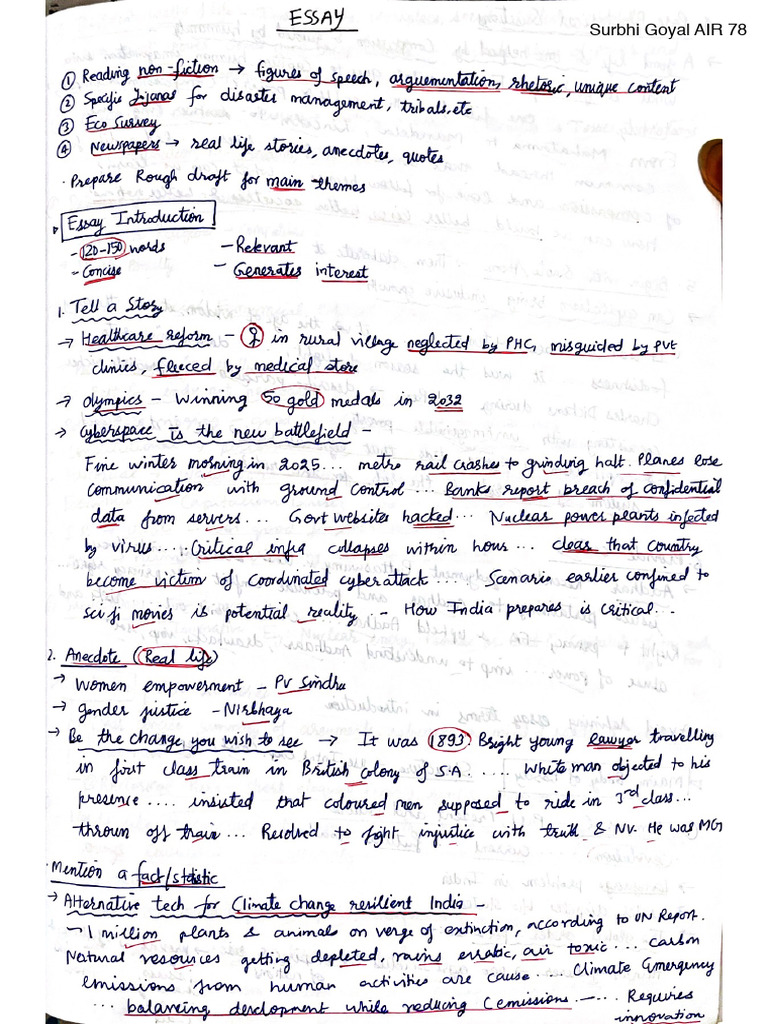 Surbhi Goyal AIR 78
ESSAY
① Reading non-fiction → figures of speech, arguementation, rhetoric, unique content
② Specific Yojanas for disaster management, tribals, etc
③ Eco Survey
④ Newspapers → real life stories, anecdotes, quotes
· Prepare Rough draft for main themes
Essay Introduction
- 120-150 words - Relevant
- Concise - Generates interest
1. Tell a Story
→ Healthcare reform - ♀ in rural village neglected by PHC, misguided by pvt
clinics, fleeced by medical store
→ Olympics - Winning 50 gold medals in 2032
→ Cyberspace is the new battlefield -
Fine winter morning in 2025... metro rail crashes to grinding halt. Planes lose
communication with ground control ... Banks report breach of confidential
data from servers... Govt websites hacked... Nuclear power plants infected
by virus.... Critical infra collapses within hour... clear that country
become victim of coordinated cyberattack... Scenario earlier confined to
sci fi movies is potential reality .. How India prepares is critical...
2. Anecdote (Real life)
→ Women empowerment - PV Sindhu
→ gender justice - Nirbhaya
→ Be the change you wish to see → It was 1893 Bright young lawyer travelling
in first class train in British colony of S.A..... White man objected to his
presence .... insisted that coloured men supposed to ride in 3rd class...
thrown off train... Resolved to fight injustice with truth & NV. He was MG
· Mention a fact/statistic
→ Alternative tech for Climate change resilient India -
1 million plants & animals on verge of extinction, according to UN Report.
Natural resources getting depleted, rains erratic, air toxic... carbon
emissions from human activities are cause ... Climate Emergency
... balancing development while reducing C emissions -... Requires
innovation